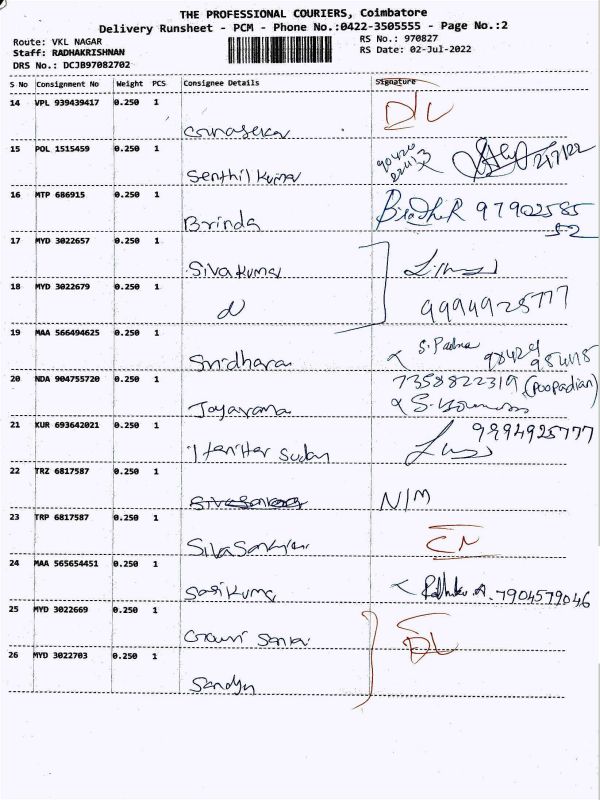 THE PROFESSIONAL COURIERS, Coimbatore
Delivery Runsheet - PCM - Phone No.:0422-3505555 - Page No.:2
Route: VKL NAGAR
RS No.: 970827
Staff: RADHAKRISHNAN
RS Date: 02-Jul-2022
DRS No.: DCJB97082702
S No Consignment No Weight PCS Consignee Details Signature
14 VPL 939439417 0.250 1
DL
15 POL 1515459 0.250 1
Senthil Kumar 2/7/22
16 MTP 686915 0.250 1
Brinda 97902585
52
17 MYD 3022657 0.250 1
Siva Kumar
18 MYD 3022679 0.250 1
9994925777
19 MAA 566494625 0.250 1
Sridharan S. Padma
20 NDA 904755720 0.250 1
7358822319 (Poopadian)
Jayarama
21 KUR 693642021 0.250 1
9994925777
Hari Har Sudan
22 TRZ 6817587 0.250 1
N/M
23 TRP 6817587 0.250 1
CN
24 MAA 565654451 0.250 1
Sasi Kumar 7904579046
25 MYD 3022669 0.250 1
Gowri Sankar DL
26 MYD 3022703 0.250 1
Sandya